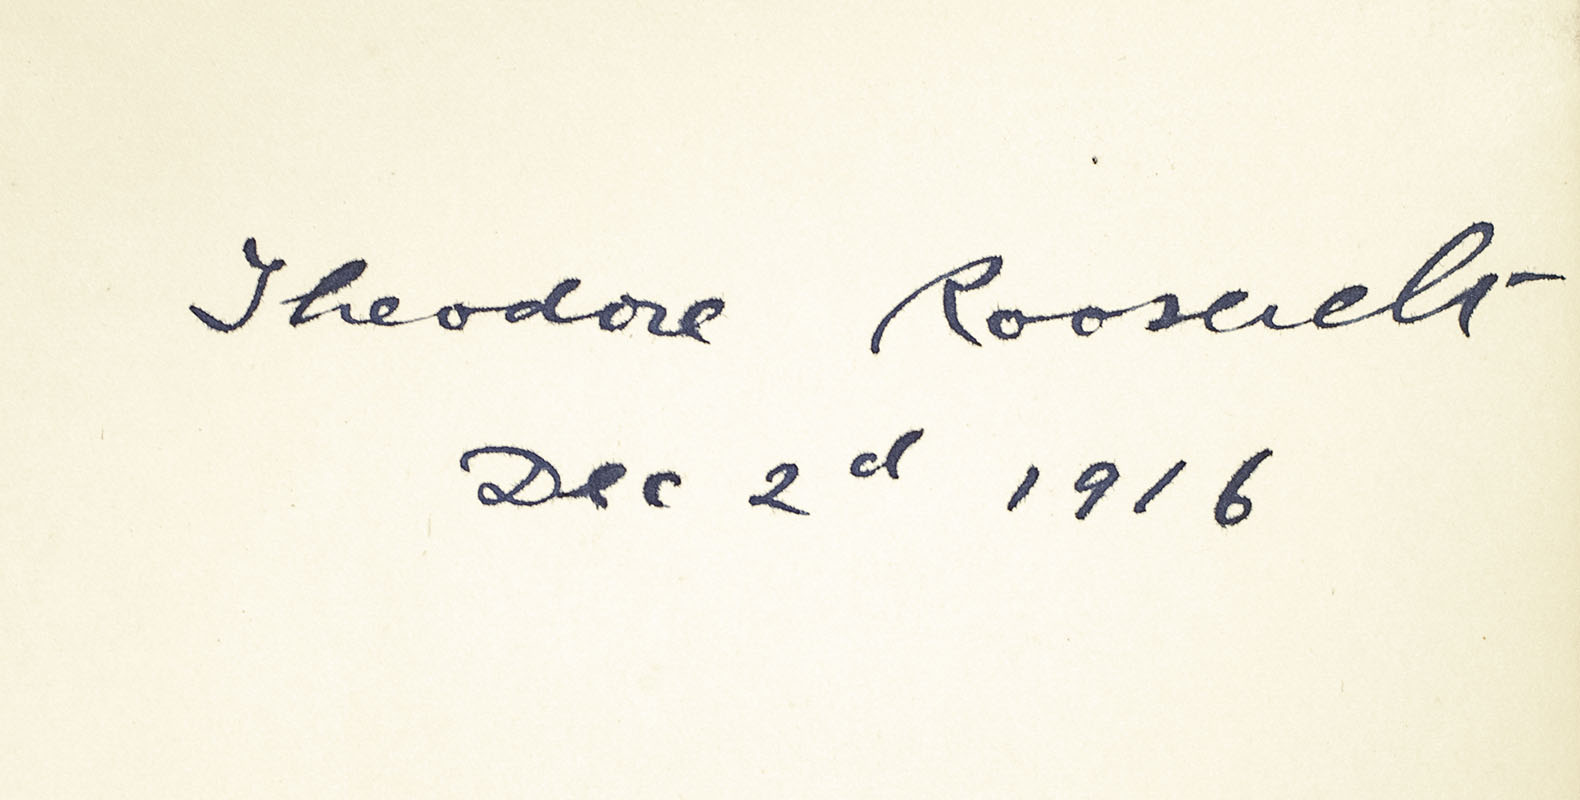 Theodore Roosevelt
Dec 2d 1916